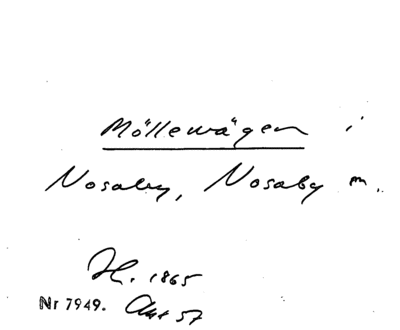 Möllevägen i
Nosaby, Nosaby sn.
H. 1865
Nr 7949. Akt 57